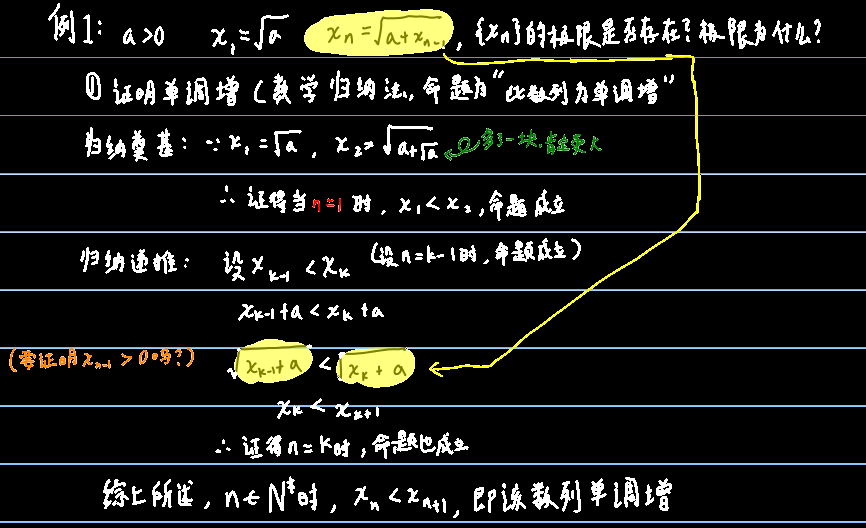 例1: a>0 x₁=√a xₙ=√(a+xₙ₋₁), {xₙ}的极限是否存在?极限为什么?
① 证明单调增(数学归纳法,命题为“此数列为单调增”
归纳奠基: ∵x₁=√a, x₂=√(a+√a) 多了一块,肯定更大
∴ 证得当n=1时, x₁<x₂, 命题成立
归纳递推: 设xₖ₋₁<xₖ (设n=k-1时,命题成立)
xₖ₋₁+a<xₖ+a
(需证明xₙ₋₁>0吗?) √(xₖ₋₁+a) < √(xₖ+a)
xₖ < xₖ₊₁
∴ 证得n=k时,命题也成立
综上所述, n∈N*时, xₙ<xₙ₊₁, 即该数列单调增